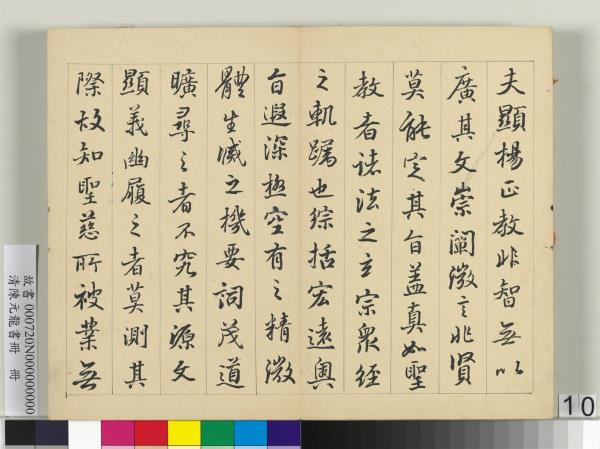 夫顯揚正教非智無以
廣其文崇闡微言非賢
莫能定其旨蓋真如聖
教者諸法之玄宗衆經
之軌躅也綜括宏遠奧
旨遐深極空有之精微
體生滅之機要詞茂道
曠尋之者不究其源文
顯義幽履之者莫測其
際故知聖慈所被業無
故書 000720N000000000
清陳元龍書冊 冊
10